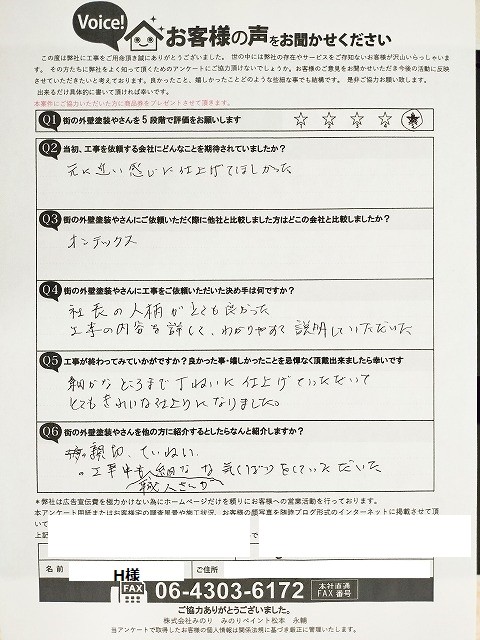 Voice!
お客様の声をお聞かせください
この度は弊社に工事をご用命頂き誠にありがとうございました。世の中には弊社の存在やサービスをご存知ないお客様が沢山いらっしゃいま
す。その方たちに弊社をよく知って頂くためのアンケートにご協力頂けないでしょうか。お客様のご意見をお聞かせいただき今後の活動に反映
させていただきたいと考えております。良かったこと、嬉しかったことどのような些細な事でも結構です。是非ご協力お願い致します。
出来るだけ具体的に書いて頂ければ幸いです。
本案件にご協力いただいた方に商品券をプレゼントさせて頂きます。
Q1 街の外壁塗装やさんを5段階で評価をお願いします ☆ ☆ ☆ ☆ ★
Q2 当初、工事を依頼する会社にどんなことを期待されていましたか?
元に近い感じに仕上げてほしかった
Q3 街の外壁塗装やさんにご依頼いただく際に他社と比較しました方はどこの会社と比較しましたか?
オンテックス
Q4 街の外壁塗装やさんに工事をご依頼いただいた決め手は何ですか?
社長の人柄がとても良かった
工事の内容を詳しく、わかりやすく説明していただいた
Q5 工事が終わってみていかがですか?良かった事・嬉しかったことを忌憚なく頂戴出来ましたら幸いです
細かなところまで丁ねいに仕上げていただいて
とてもきれいな仕上りになりました。
Q6 街の外壁塗装やさんを他の方に紹介するとしたらなんと紹介しますか?
親切、ていねい
。工事中も細かな気くばりをしていただいた
職人さんが
*弊社は広告宣伝費を極力かけない為にホームページだけを頼りにお客様への営業活動を行っております。
本アンケート用紙またはお客様宅の調査風景や施工状況、お客様の顔写真を随時ブログ形式のインターネットに掲載させて頂
いて
上記 で
名前 H様 ご住所
FAX 06-4303-6172 本社直通 FAX番号
ご協力ありがとうございました。
株式会社みのり みのりペイント松本 永輔
当アンケートで取得したお客様の個人情報は関係法規に基づき厳正に管理いたします。